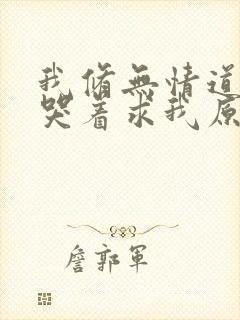 我脩無情道
哭着求我原
詹郭軍